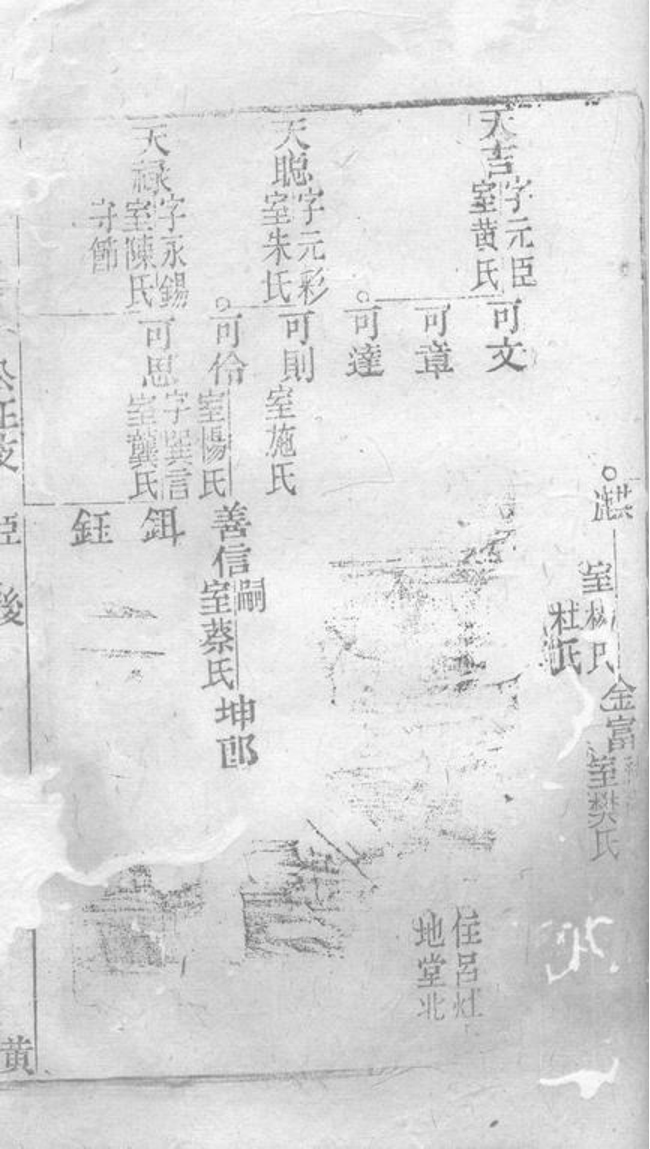 天吉
字元臣
室黄氏
可文
可章
可達
天聪
字元彩
室朱氏
可則
室施氏
可伶
室楊氏
善信
嗣
室蔡氏
坤郎
天禄
字永錫
室陳氏
守節
可思
字巽言
室龔氏
鉺
鈺
室
杜氏
金富
室樊氏
住呂灶
地堂北
黄